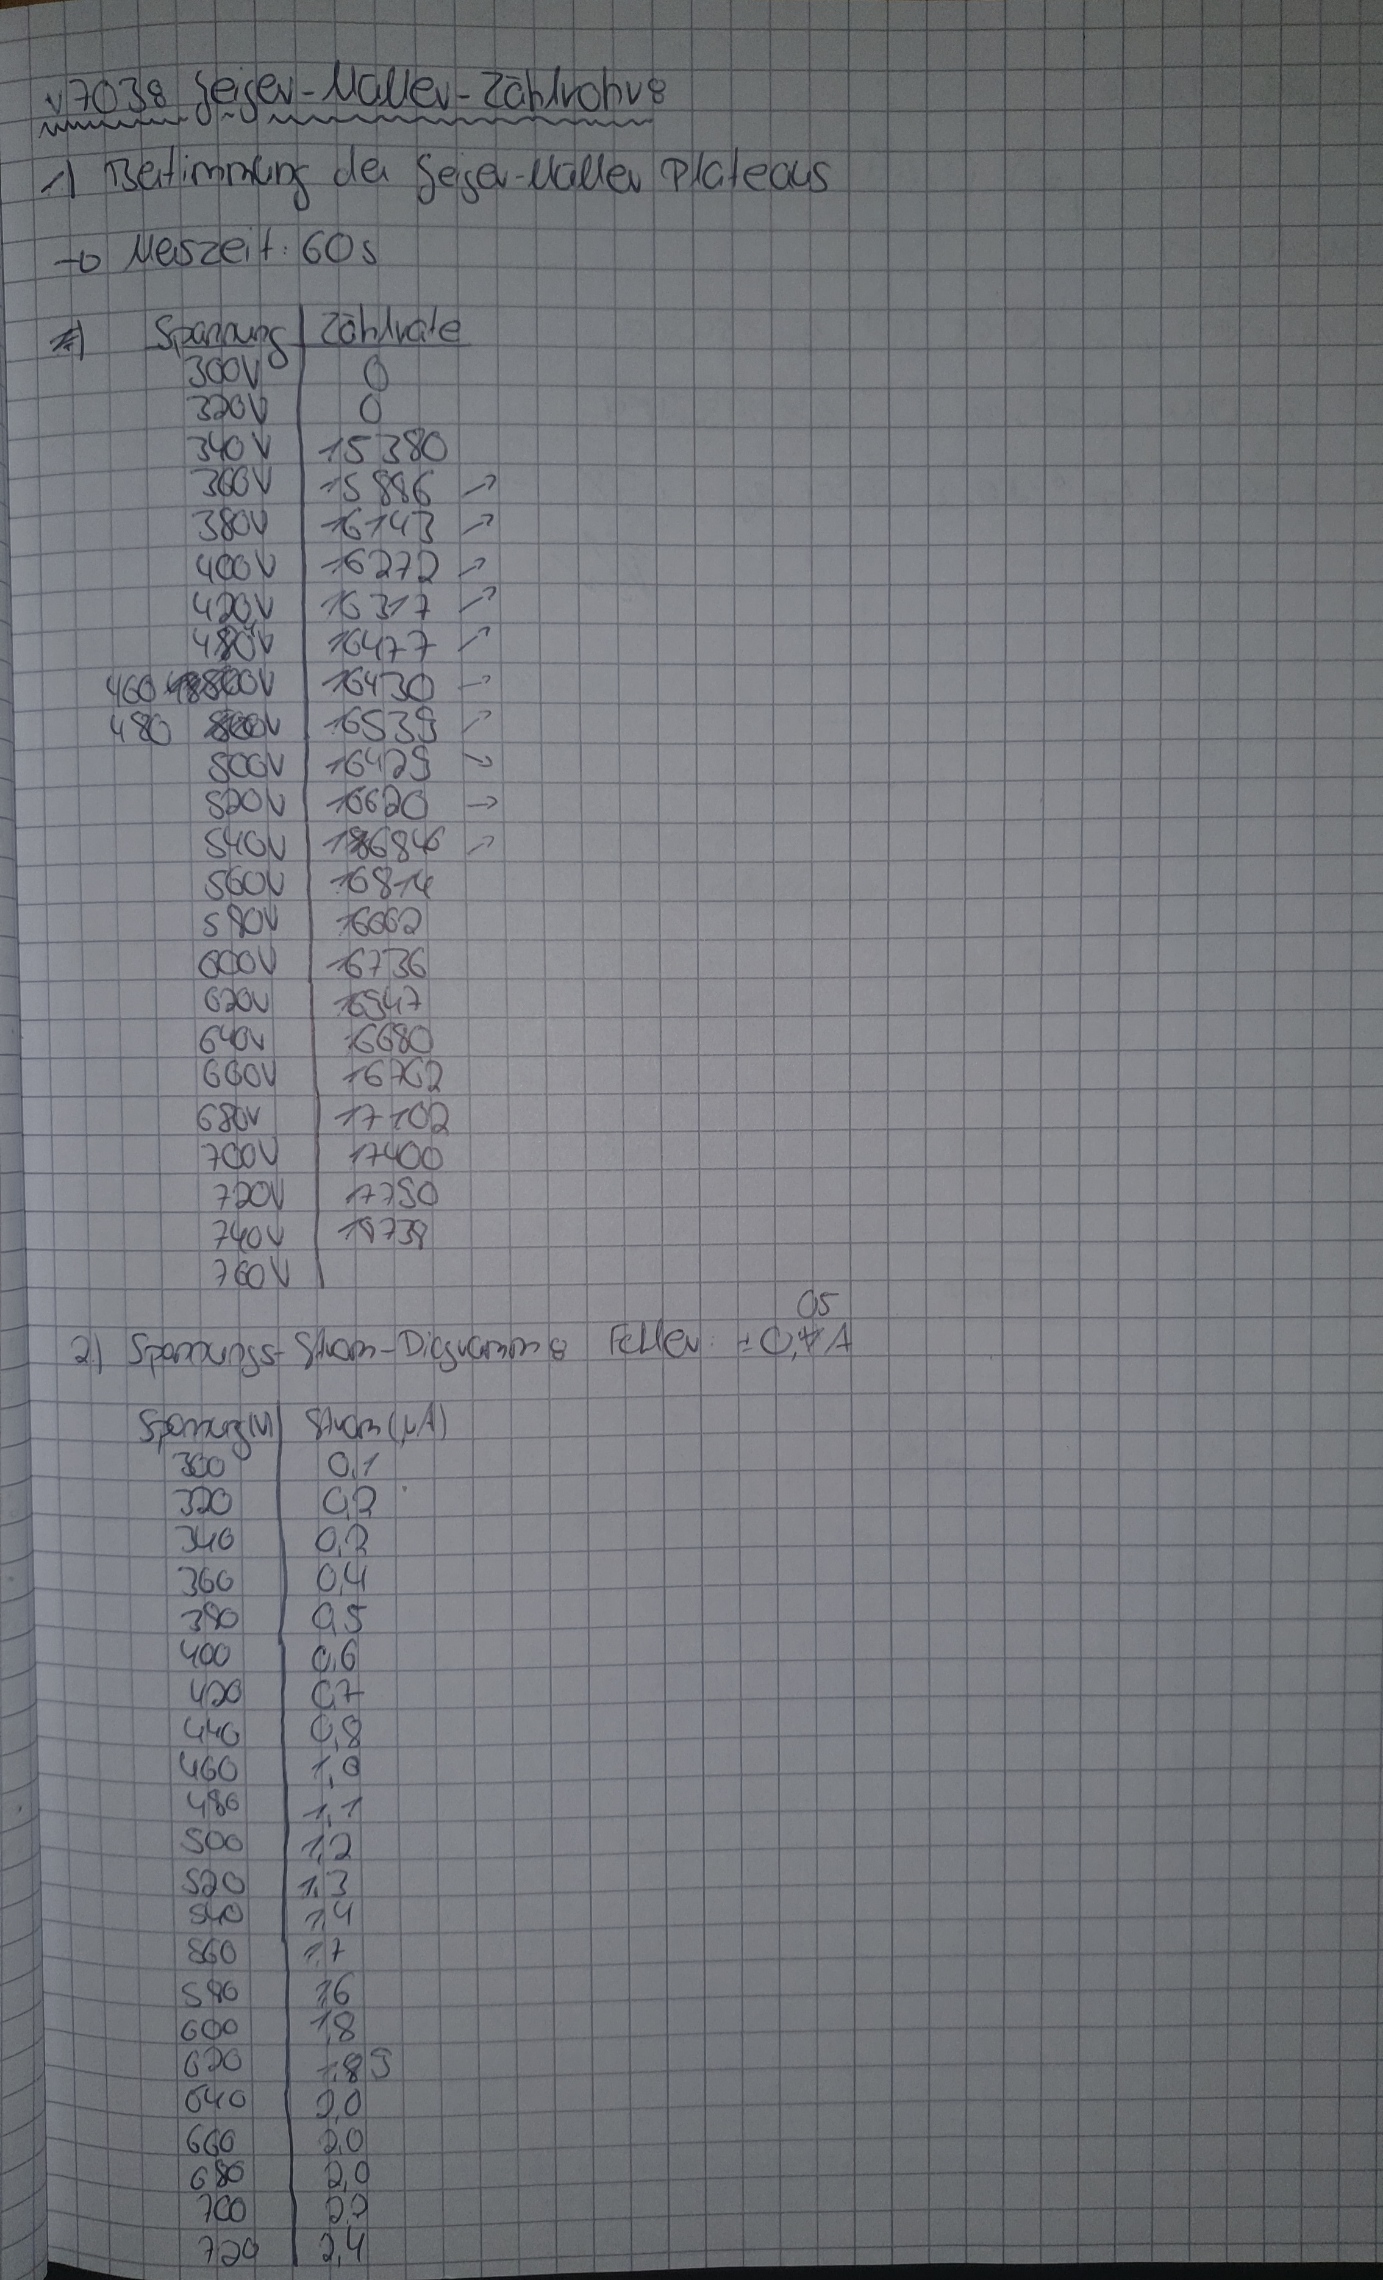 V703: Geiger-Müller-Zählrohr:
1) Bestimmung des Geiger-Müller Plateaus
→ Messzeit: 60s
Spannung | Zählrate
300V 0
320V 0
340V 15380
360V 15886 ↗
380V 16143 ↗
400V 16272 ↗
420V 16317 ↗
16477 ↗
460 16430 →
480 16539 ↗
500V 16429 ↘
520V 16620 →
540V 16846 ↗
560V 16814
580V 16662
600V 16736
620V 16947
640V 16680
660V 16762
680V 17102
700V 17400
720V 17750
740V
760V
2) Spannungs-Strom-Diagramm: Fehler: ± 0,05 A
Spannung(V) | Strom (μA)
300 0,1
320 0,2
340 0,3
360 0,4
380 0,5
400 0,6
420 0,7
440 0,8
460 1,0
480 1,1
500 1,2
520 1,3
540 1,4
560 1,7
580 1,6
600 1,8
620
640 2,0
660 2,0
680 2,0
700 2,2
720 2,4